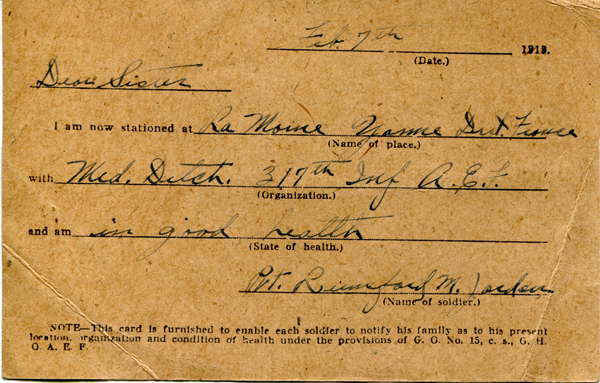 Feb. 7th 1919.
(Date.)
Dear Sister
I am now stationed at La Moine Yonne Dist. France
(Name of place.)
with Med. Detch. 317th Inf A.E.F.
(Organization.)
and am in good health
(State of health.)
Pvt. Rumford M. Jordan
(Name of soldier.)
NOTE—This card is furnished to enable each soldier to notify his family as to his present
location, organization and condition of health under the provisions of G. O. No. 15, c. s., G. H.
Q. A. E. F.